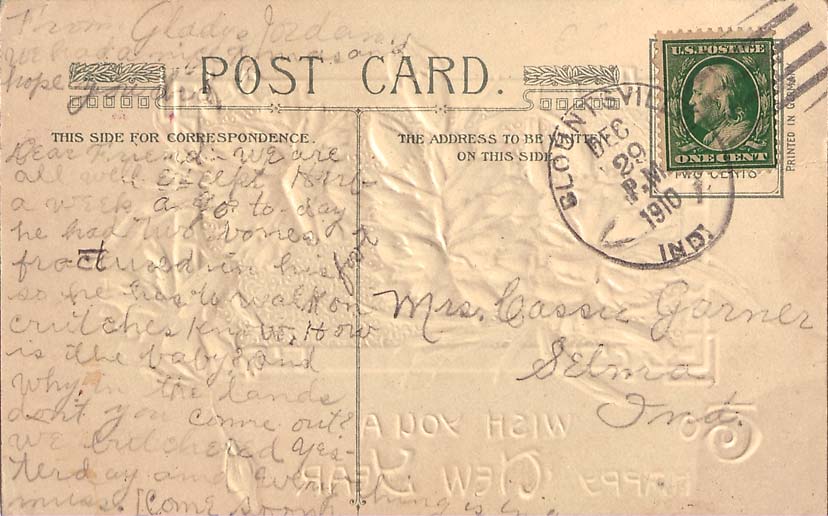 From Gladys Jordan
We had a nice Xmas and
hope you did
POST CARD.
THIS SIDE FOR CORRESPONDENCE.
Dear Friend- We are
all well except Herb
a week ago to day
he had two bones
fractured in his foot
so he has to walk on
crutches know. How
is the baby? and
why in the lands
dont you come out?
we butchered yes-
terday and every
muss. [Come soon] thing is in a
THE ADDRESS TO BE WRITTEN
ON THIS SIDE
Mrs. Cassie Garner
Selma
Ind.
U.S. POSTAGE
ONE CENT
TWO CENTS
PRINTED IN GERMANY
BLOUNTSVILLE
DEC
29
P.M.
1910
1
IND.
WISH YOU A
HAPPY NEW YEAR